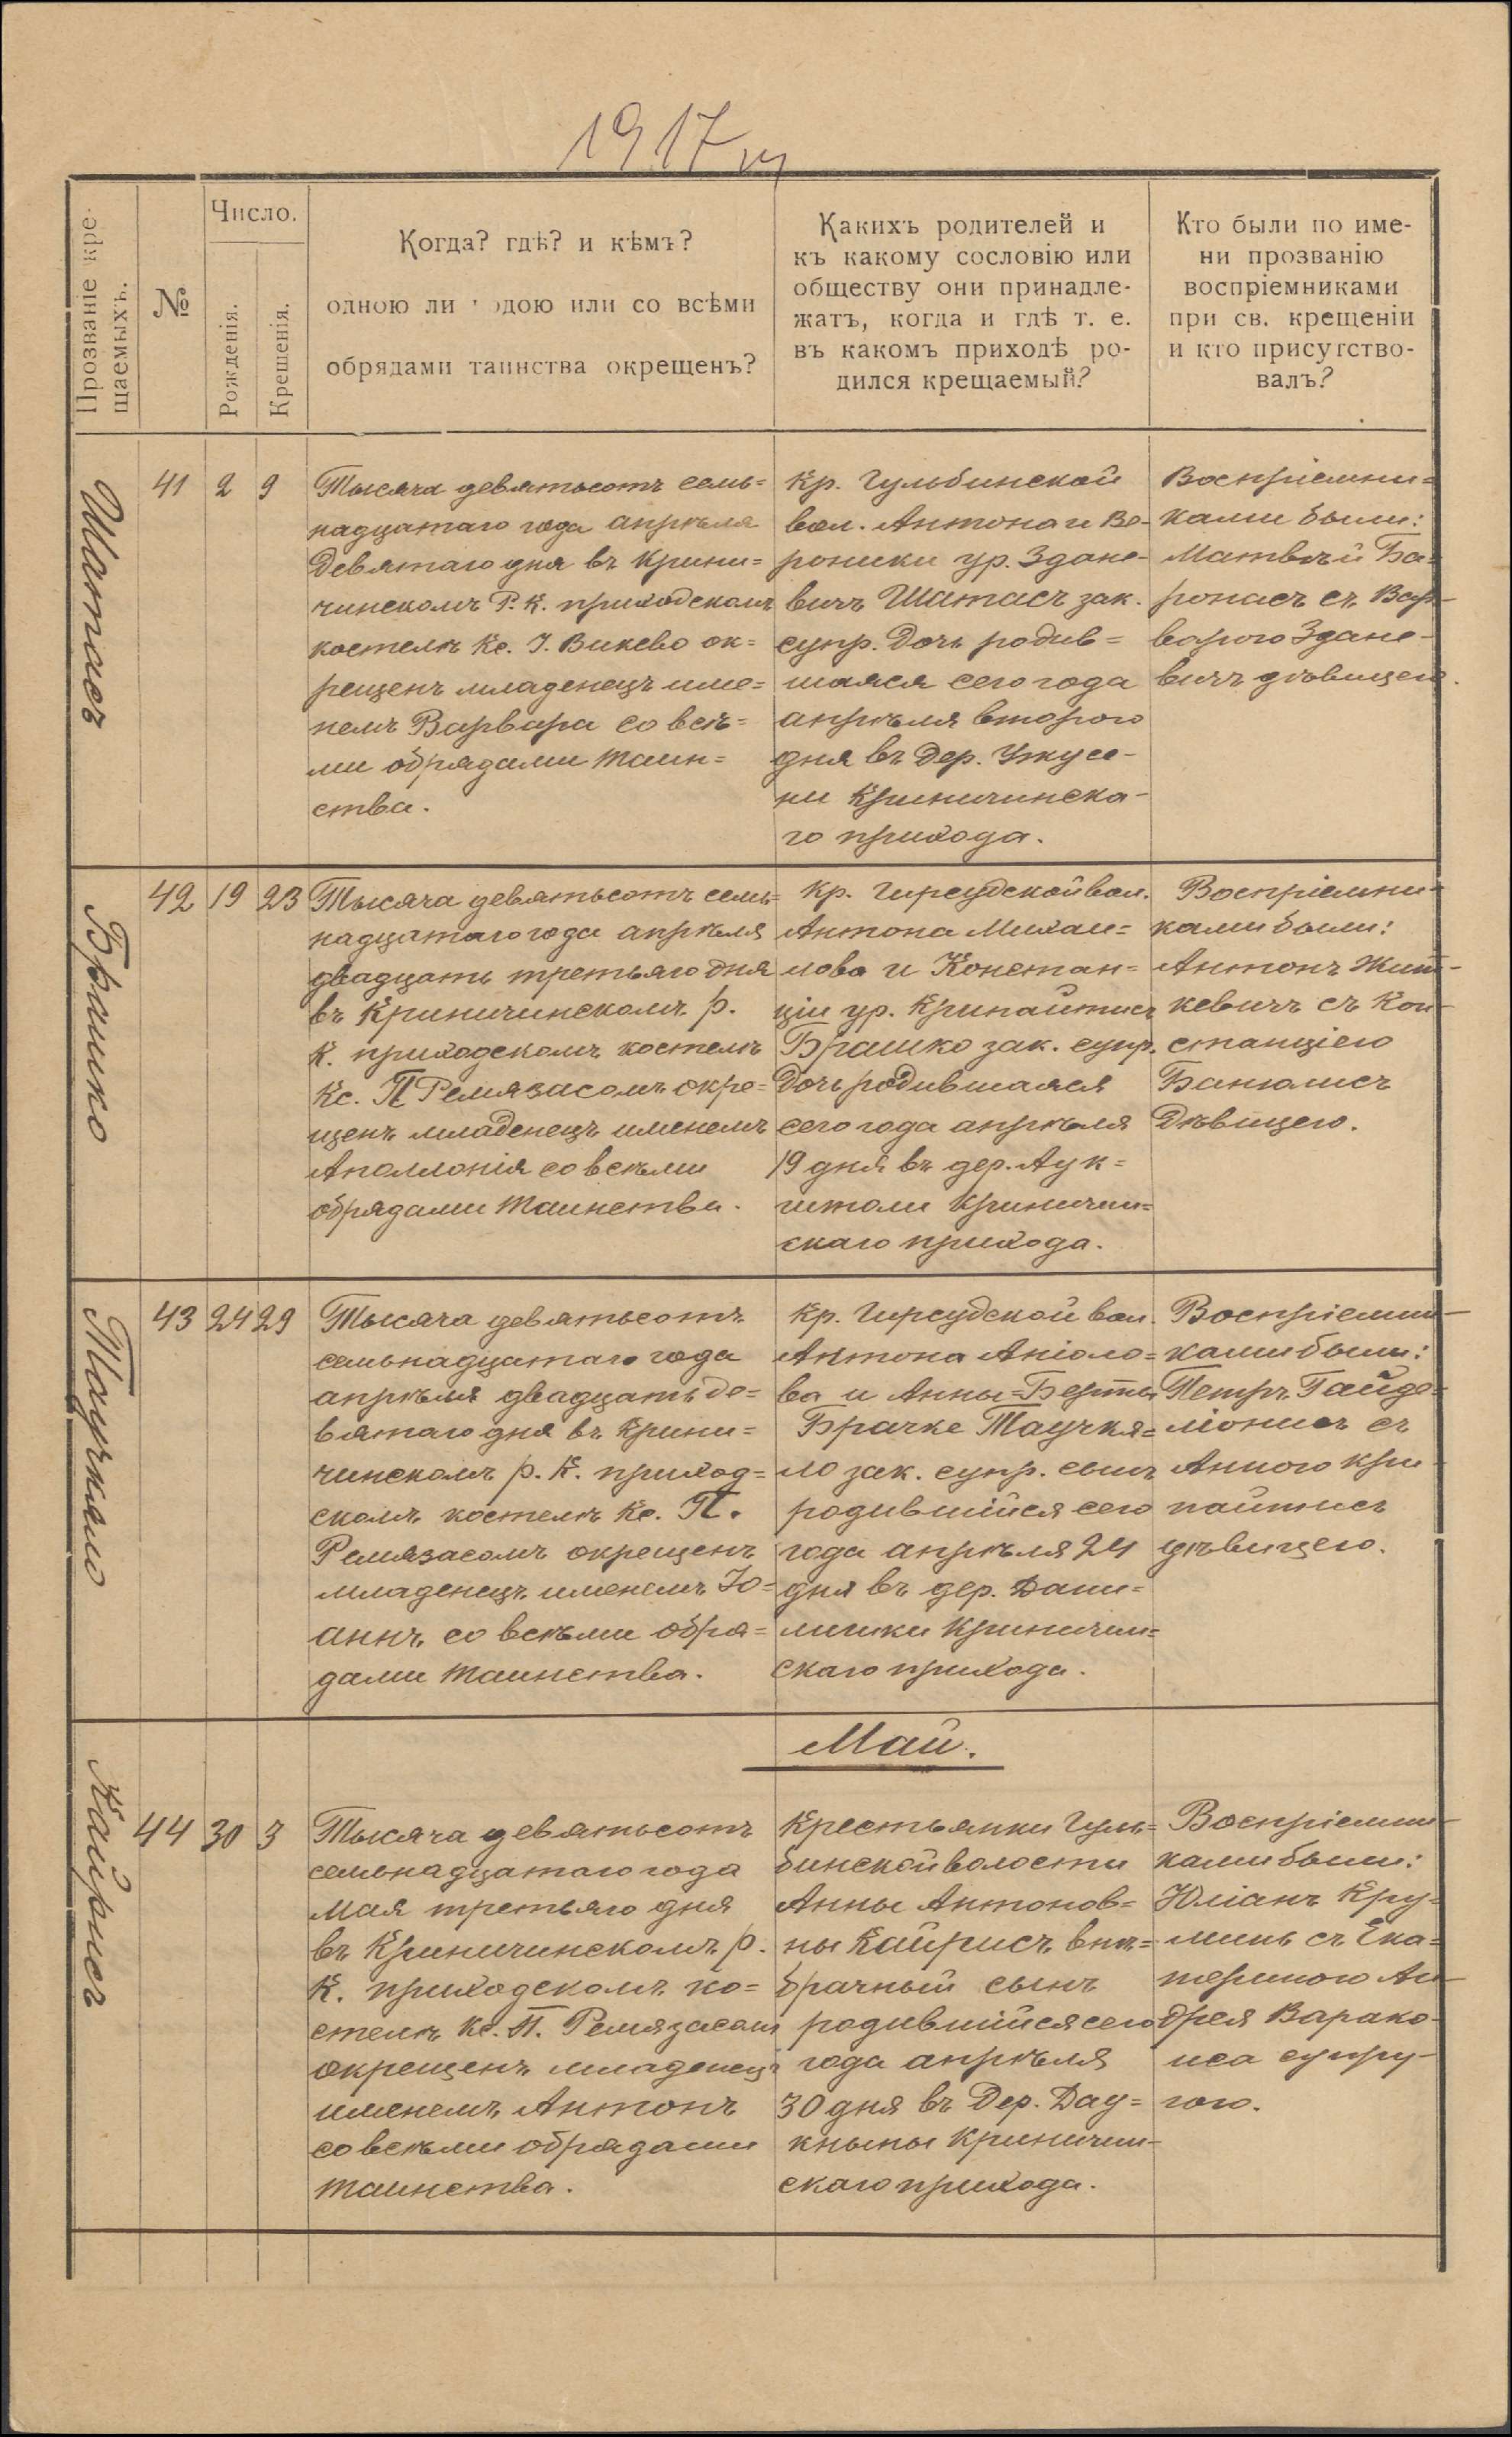 1917
Прозваніе кре-
щаемыхъ.
№
Число.
Рожденія.
Крещенія.
Когда? гдѣ? и кѣмъ?
одною ли водою или со всѣми
обрядами таинства окрещенъ?
Какихъ родителей и
къ какому сословію или
обществу они принадле-
жатъ, когда и гдѣ т. е.
въ какомъ приходѣ ро-
дился крещаемый?
Кто были по име-
ни прозванію
воспріемниками
при св. крещеніи
и кто присутство-
валъ?
Шатасъ
41 2 9
Тысяча девятьсотъ семь=
надцатаго года апрѣля
девятаго дня въ Крини=
чинскомъ Р. К. приходскомъ
костелѣ Кс. I. Викево ок=
рещенъ младенецъ име=
немъ Варвара со всѣ=
ми обрядами таин=
ства.
Кр. Гульбинской
вол. Антона и Ве-
роники ур. Здане-
вичъ Шатасъ зак.
супр. дочь родив=
шаяся сего года
апрѣля второго
дня въ дер. Ужусе-
ни Криничинска-
го прихода.
Воспріемни=
ками были:
Матвѣй Ба=
ронасъ съ Вар-
варою Здане-
вичъ дѣвицею.
Брашко
42 19 23
Тысяча девятьсотъ семь=
надцатаго года апрѣля
двадцать третьяго дня
въ Криничинскомъ р.
К. приходскомъ костелѣ
Кс. П Ремязасомъ окре=
щенъ младенецъ именемъ
Аполлонія со всѣми
обрядами таинства.
Кр. Гирсудской вол.
Антона Михаи=
лова и Констан=
ціи ур. Крипайтисъ
Брашко зак. супр.
дочь родившаяся
сего года апрѣля
19 дня въ дер. Аук=
штоли Криничин=
скаго прихода.
Воспріемни-
ками были:
Антонъ
кевичъ съ Кон-
станціею
Банюлисъ
дѣвицею.
Таучкяло
43 24 29
Тысяча девятьсотъ
семьнадцатаго года
апрѣля двадцать де=
вятаго дня въ Крини=
чинскомъ р. К. приход=
скомъ костелѣ Кс. П.
Ремязасомъ окрещенъ
младенецъ именемъ Iо=
аннъ со всѣми обря=
дами таинства.
Кр. Гирсудской вол.
Антона Аніоло=
ва и Анны=Берты
Брачке Таучкя=
ло зак. супр. сынъ
родившійся сего
года апрѣля 24
дня въ дер. Дани=
лишки Криничин=
скаго прихода.
Воспріемни-
ками были:
Петръ Гайде=
ліонисъ съ
Анною Кри-
пайтисъ
дѣвицею.
Май.
Кайрисъ
44 30 3
Тысяча девятьсотъ
семьнадцатаго года
Мая третьяго дня
въ Криничинскомъ р.
К. приходскомъ ко=
стелѣ Кс. П. Ремязасомъ
окрещенъ младенецъ
именемъ Антонъ
со всѣми обрядами
таинства.
Крестьянки Гуль=
бинской волости
Анны Антонов=
ны Кайрисъ внѣ=
брачный сынъ
родившійся сего
года апрѣля
30 дня въ Дер. Дау=
кныны Криничин-
скаго прихода.
Воспріемни-
ками были:
Юліанъ Кру=
минь съ Ека=
териною Ан-
дрея Варако-
иса супру-
гою.